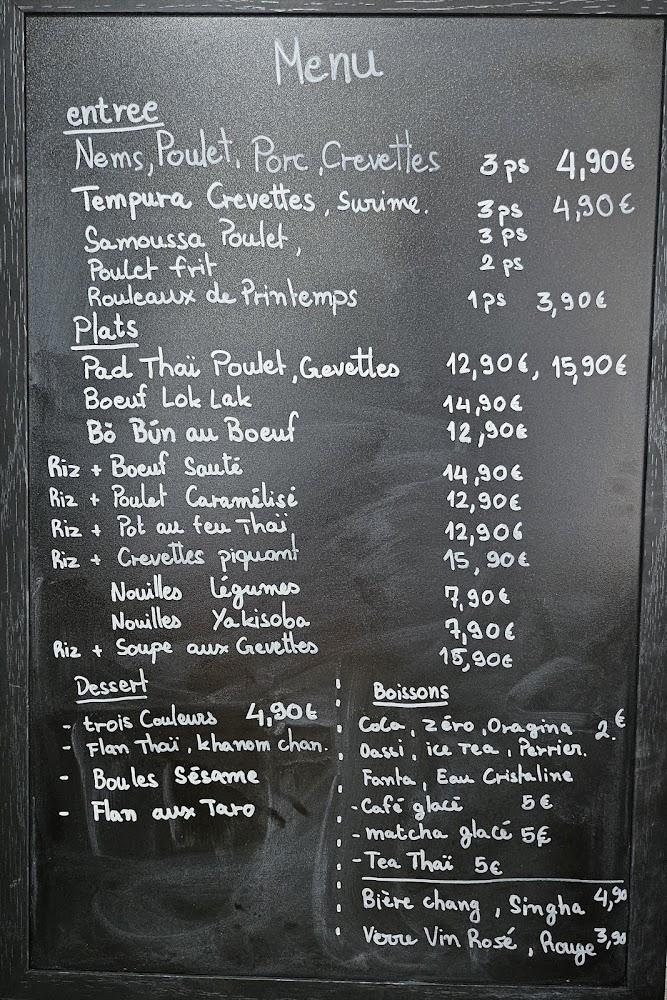 Menu
entree
Nems, Poulet, Porc, Crevettes 3 ps 4,90€
Tempura Crevettes, Surime. 3 ps 4,90€
Samoussa Poulet, 3 ps
Poulet frit 2 ps
Rouleaux de Printemps 1 ps 3,90€
Plats
Pad Thaï Poulet, Crevettes 12,90€, 15,90€
Boeuf Lok Lak 14,90€
Bò Bún au Boeuf 12,90€
Riz + Boeuf Sauté 14,90€
Riz + Poulet Caramélisé 12,90€
Riz + Pot au feu Thaï 12,90€
Riz + Crevettes piquant 15,90€
Nouilles légumes 7,90€
Nouilles Yakisoba 7,90€
Riz + Soupe aux Crevettes 15,90€
Dessert
- trois Couleurs 4,90€
- Flan Thaï, khanom chan.
- Boules Sésame
- Flan aux Taro
Boissons
Coca, zéro, Oragina 2.€
Oassi, ice Tea, Perrier.
Fanta, Eau Cristaline
- Café glacé 5€
- matcha glacé 5€
- Tea Thaï 5€
Bière chang, Singha 4,90
Verre Vin Rosé, Rouge 3,90